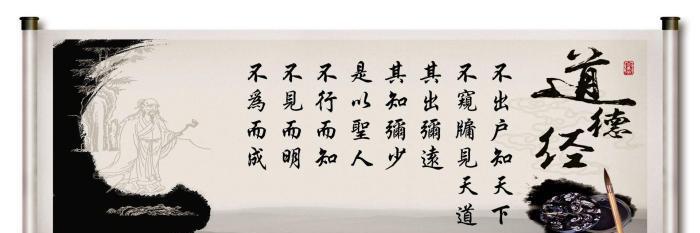 道德经
不出户知天下
不窺牖見天道
其出彌遠
其知彌少
是以聖人
不行而知
不見而明
不為而成